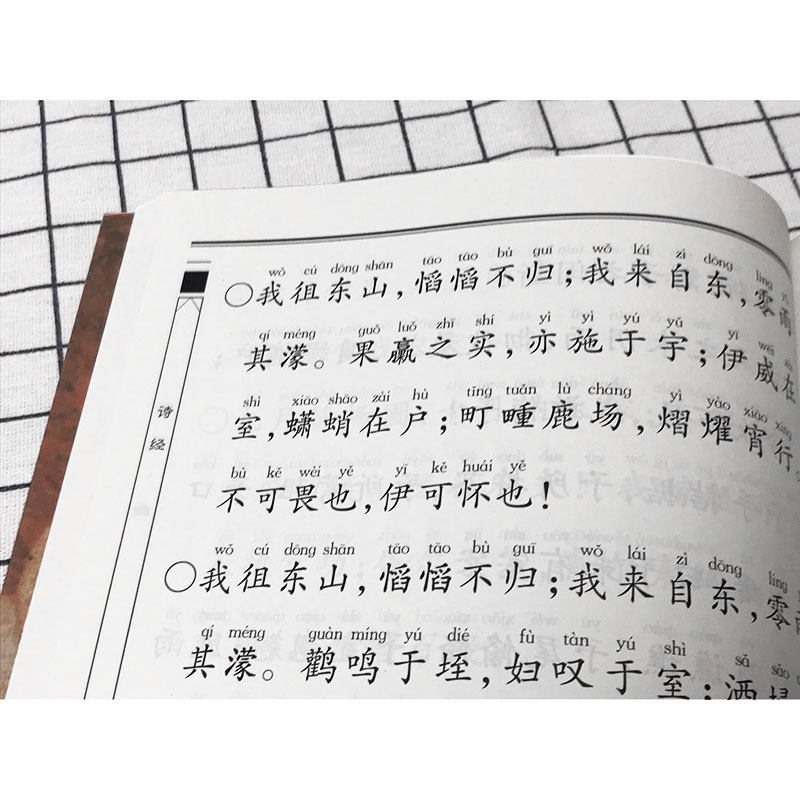 诗经
wǒ cú dōng shān tāo tāo bù guī wǒ lái zì dōng líng
○我徂东山，慆慆不归；我来自东，零雨
qí méng guǒ luǒ zhī shí yì yì yú yǔ yī wēi zài
其濛。果臝之实，亦施于宇；伊威在
shì xiāo shāo zài hù tīng tuǎn lù cháng yì yào xiāo xíng
室，蟏蛸在户；町畽鹿场，熠耀宵行。
bù kě wèi yě yī kě huái yě
不可畏也，伊可怀也！
wǒ cú dōng shān tāo tāo bù guī wǒ lái zì dōng líng
○我徂东山，慆慆不归；我来自东，零雨
qí méng guàn míng yú dié fù tàn yú shì sǎ sǎo
其濛。鹳鸣于垤，妇叹于室；洒扫